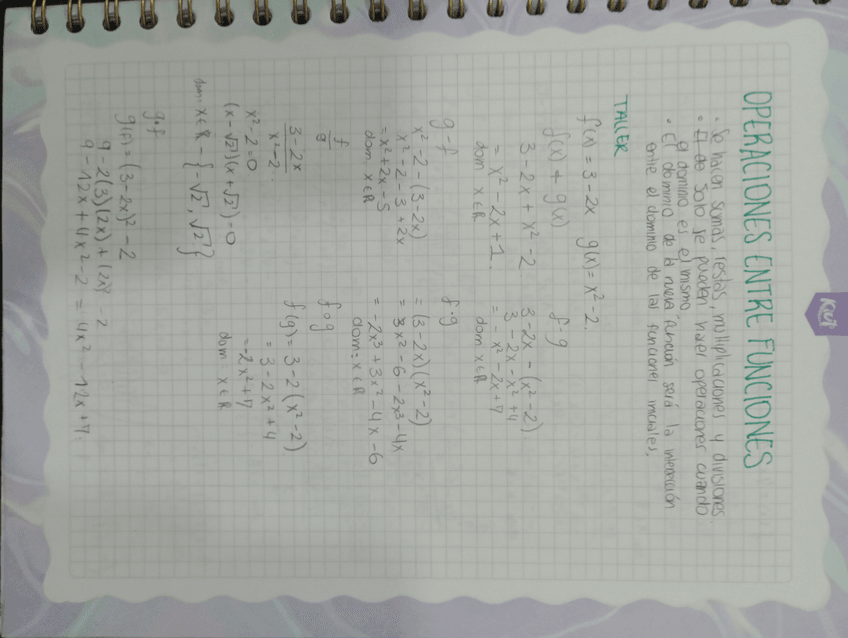 OPERACIONES ENTRE FUNCIONES
• Se hacen sumas, restas, multiplicaciones y divisiones.
• Solo se pueden hacer operaciones cuando
el dominio es el mismo.
• El dominio de la nueva función será la
entre el dominio de las funciones iniciales.
TALLER
f(x) = 3 - 2x g(x) = x² - 2.
f(x) + g(x)
3 - 2x + x² - 2
= x² - 2x + 1.
dom x ∈ ℝ
f - g
3 - 2x - (x² - 2)
3 - 2x - x² + 4
= - x² - 2x + 7
dom x ∈ ℝ
g - f
x² - 2 - (3 - 2x)
x² - 2 - 3 + 2x
= x² + 2x - 5
dom x ∈ ℝ
f · g
= (3 - 2x)(x² - 2)
= 3x² - 6 - 2x³ - 4x
= -2x³ + 3x² - 4x - 6
dom: x ∈ ℝ
f/g
3 - 2x
x² - 2
x² - 2 = 0
(x - √2)(x + √2) = 0
dom: x ∈ ℝ - {-√2, √2}
f ∘ g
f(g) = 3 - 2(x² - 2)
= 3 - 2x² + 4
= -2x² + 7
dom x ∈ ℝ
g ∘ f
g(f) = (3 - 2x)² - 2
9 - 2(3)(2x) + (2x)² - 2
9 - 12x + 4x² - 2 = 4x² - 12x + 7.